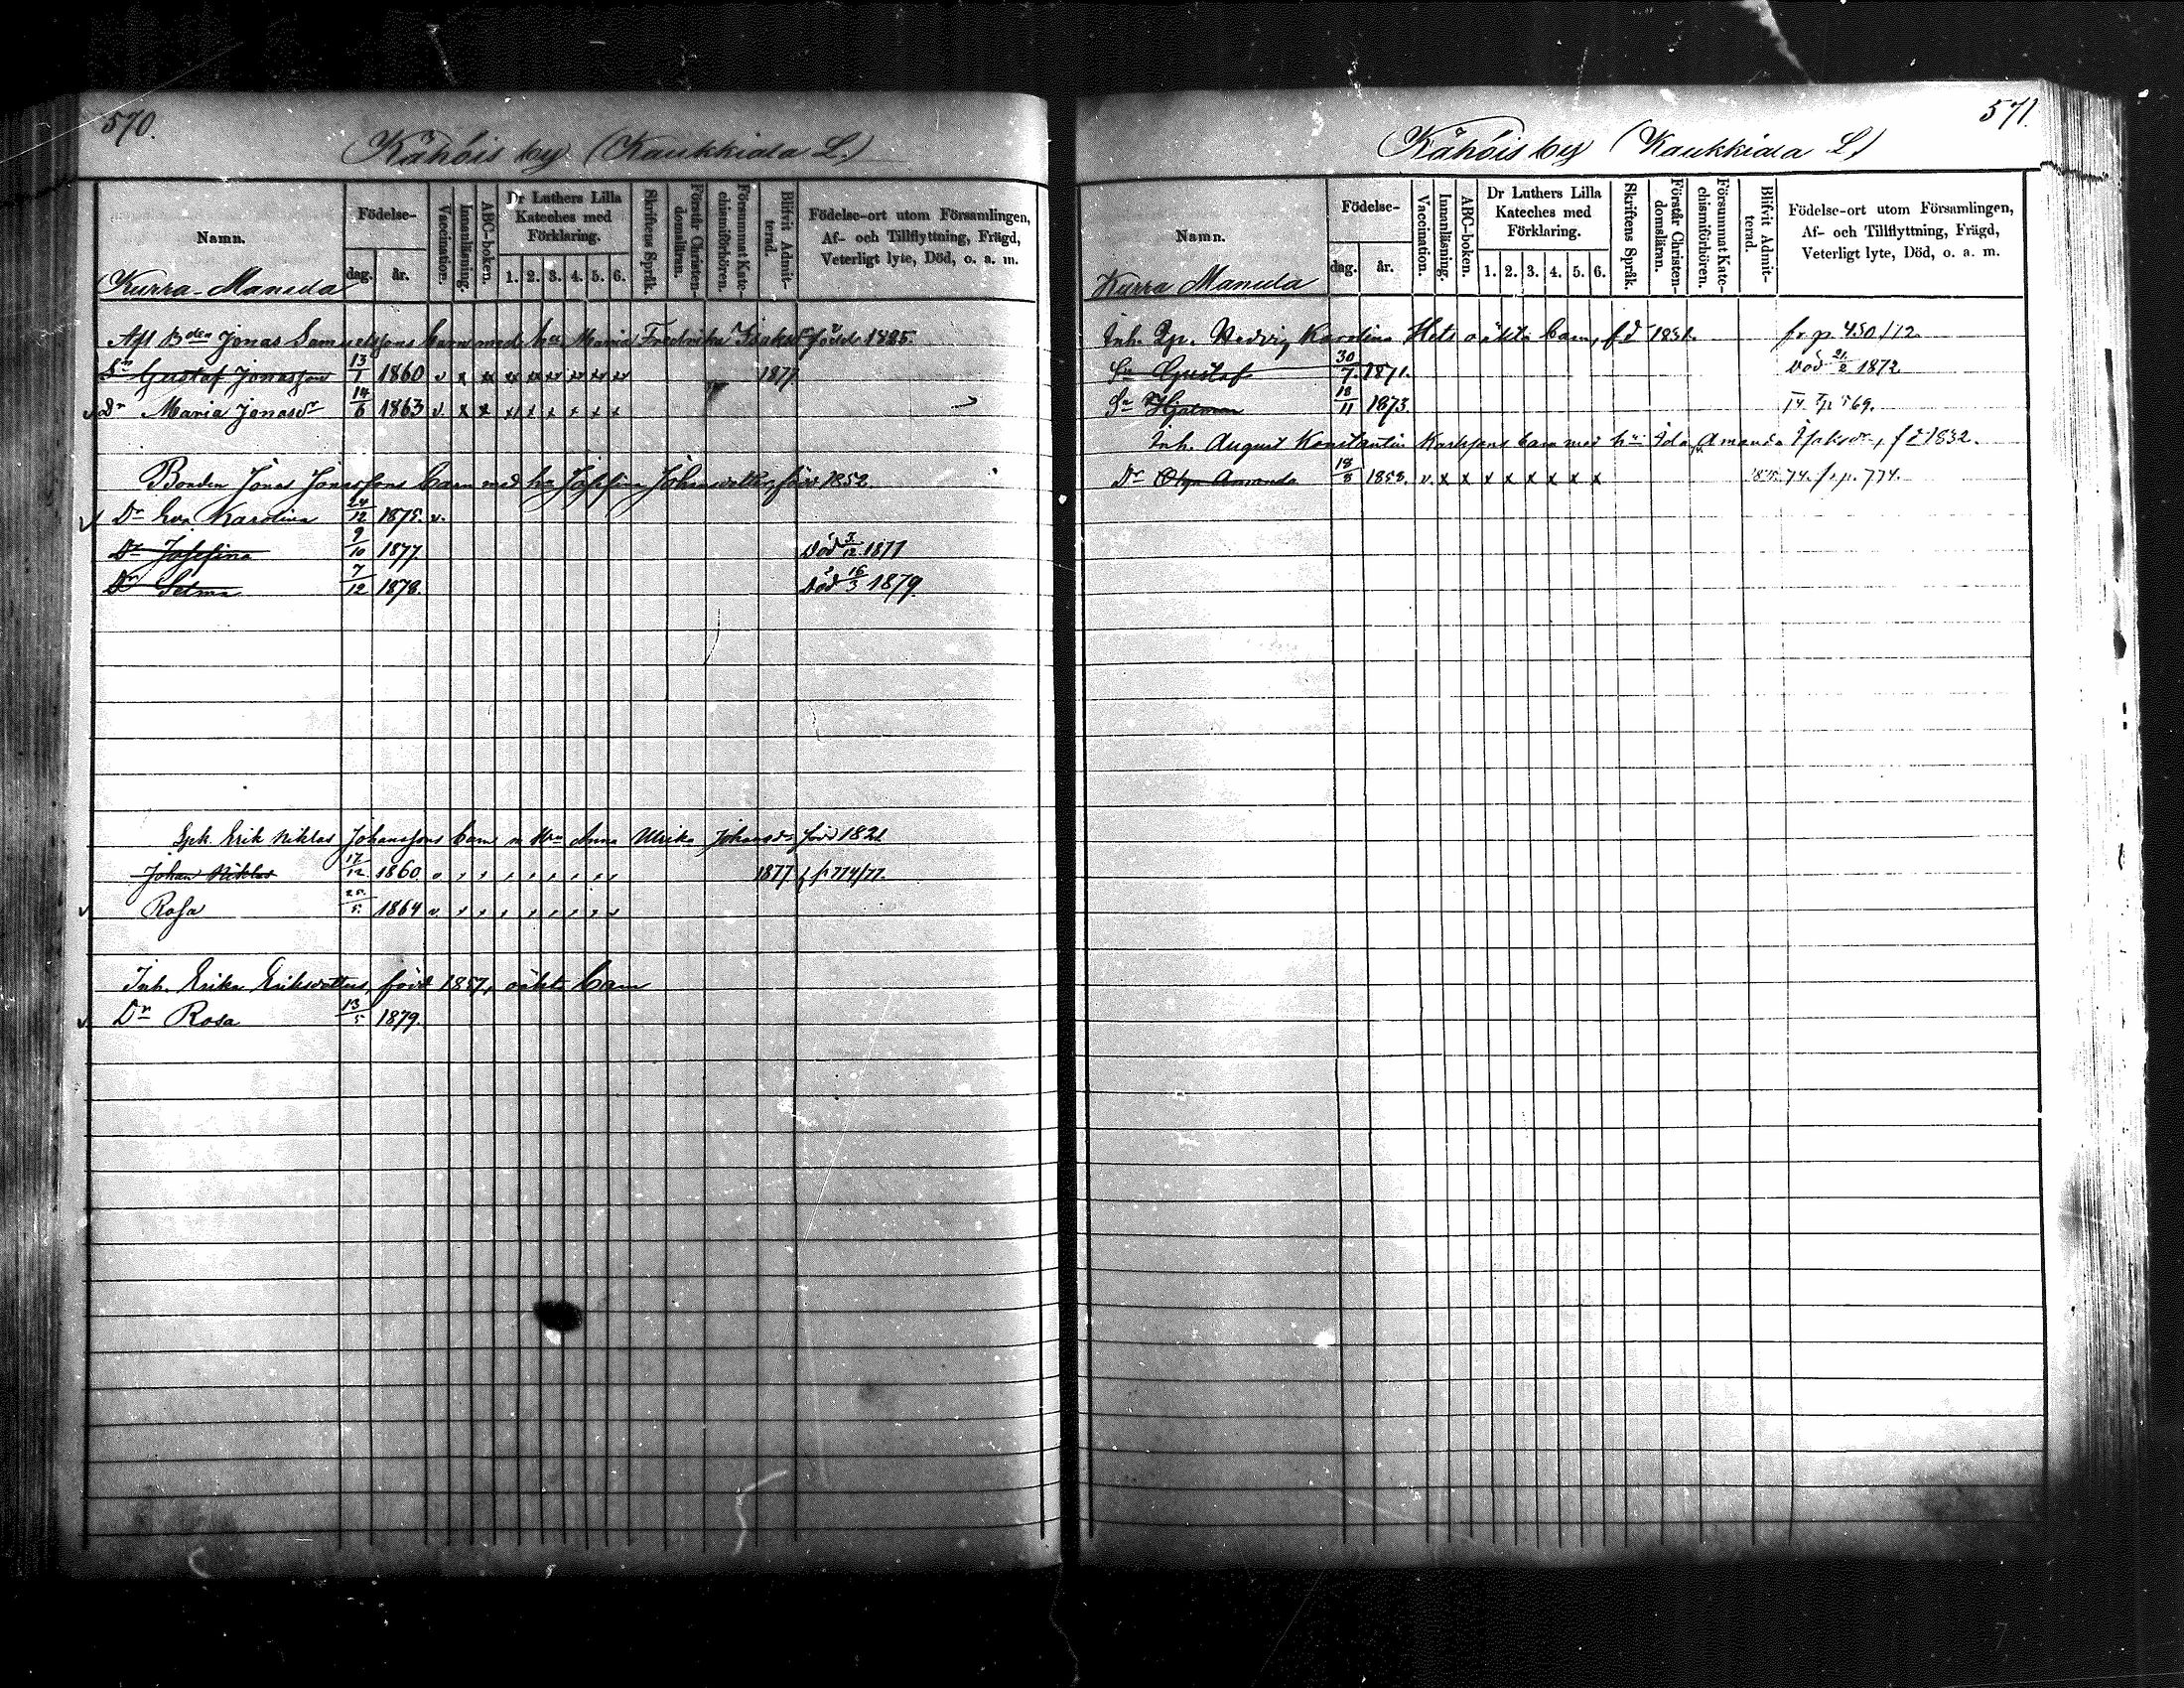 570.
Kähöis by (Kaukkiala L.)
Namn.
Födelse-
dag.
år.
Vaccination.
Innanläsning.
ABC-boken.
Dr Luthers Lilla
Kateches med
Förklaring.
1. 2. 3. 4. 5. 6.
Skriftens Språk.
Förstår Christen-
domsläran.
Försummat Kate-
chismiförhören.
Blifvit Admit-
terad.
Födelse-ort utom Församlingen,
Af- och Tillflyttning, Frägd,
Veterligt lyte, Död, o. a. m.
Kurra-Manula
Afl Bden Jonas Samuelssons barn med hu Maria Fredrika född 1825.
Sn Gustaf Jonasson 13/1 1860 v x x x x x x x x 1877
v Dr Maria Jonasdr 14/6 1863 v. x x x x x x x x
Bonden Jonas Jonassons barn med hu Josefina Johansdotter, född 1852.
v Dr Eva Karolina 24/12 1875. v.
Dr Josefina 9/10 1877 Död 3/12 1877
Dr Selma 7/12 1878. Död 16/3 1879.
Erik Niklas Johanssons barn m Hu Anna Ulrika Johansdr född 1821
Johan Niklas 17/12 1860 1877 f p 774/77.
v Rosa 25/5 1864 v
Inh. Erika Eriksdotters, född 1857, oäkta barn
v Dr Rosa 13/5 1879.
571.
Kähöis by (Kaukkiala L)
Namn.
Födelse-
dag.
år.
Vaccination.
Innanläsning.
ABC-boken.
Dr Luthers Lilla
Kateches med
Förklaring.
1. 2. 3. 4. 5. 6.
Skriftens Språk.
Förstår Christen-
domsläran.
Försummat Kate-
chismförhören.
Blifvit Admit-
terad.
Födelse-ort utom Församlingen,
Af- och Tillflyttning, Frägd,
Veterligt lyte, Död, o. a. m.
Kurra Manula
Inh. Hedvig Karolina oäkta barn, fd 1831. fr. p. 450/72
Sn Gustaf 30/7 1871. Död 21/2 1872
Sn Hjalmar 18/11 1873. 569.
Inh. August Konstantin Karlssons barn med hu Ida Amanda f d 1832.
Dr Olga Amanda 18/8 1858. v. x x x x x x x x 74. fr p. 774.